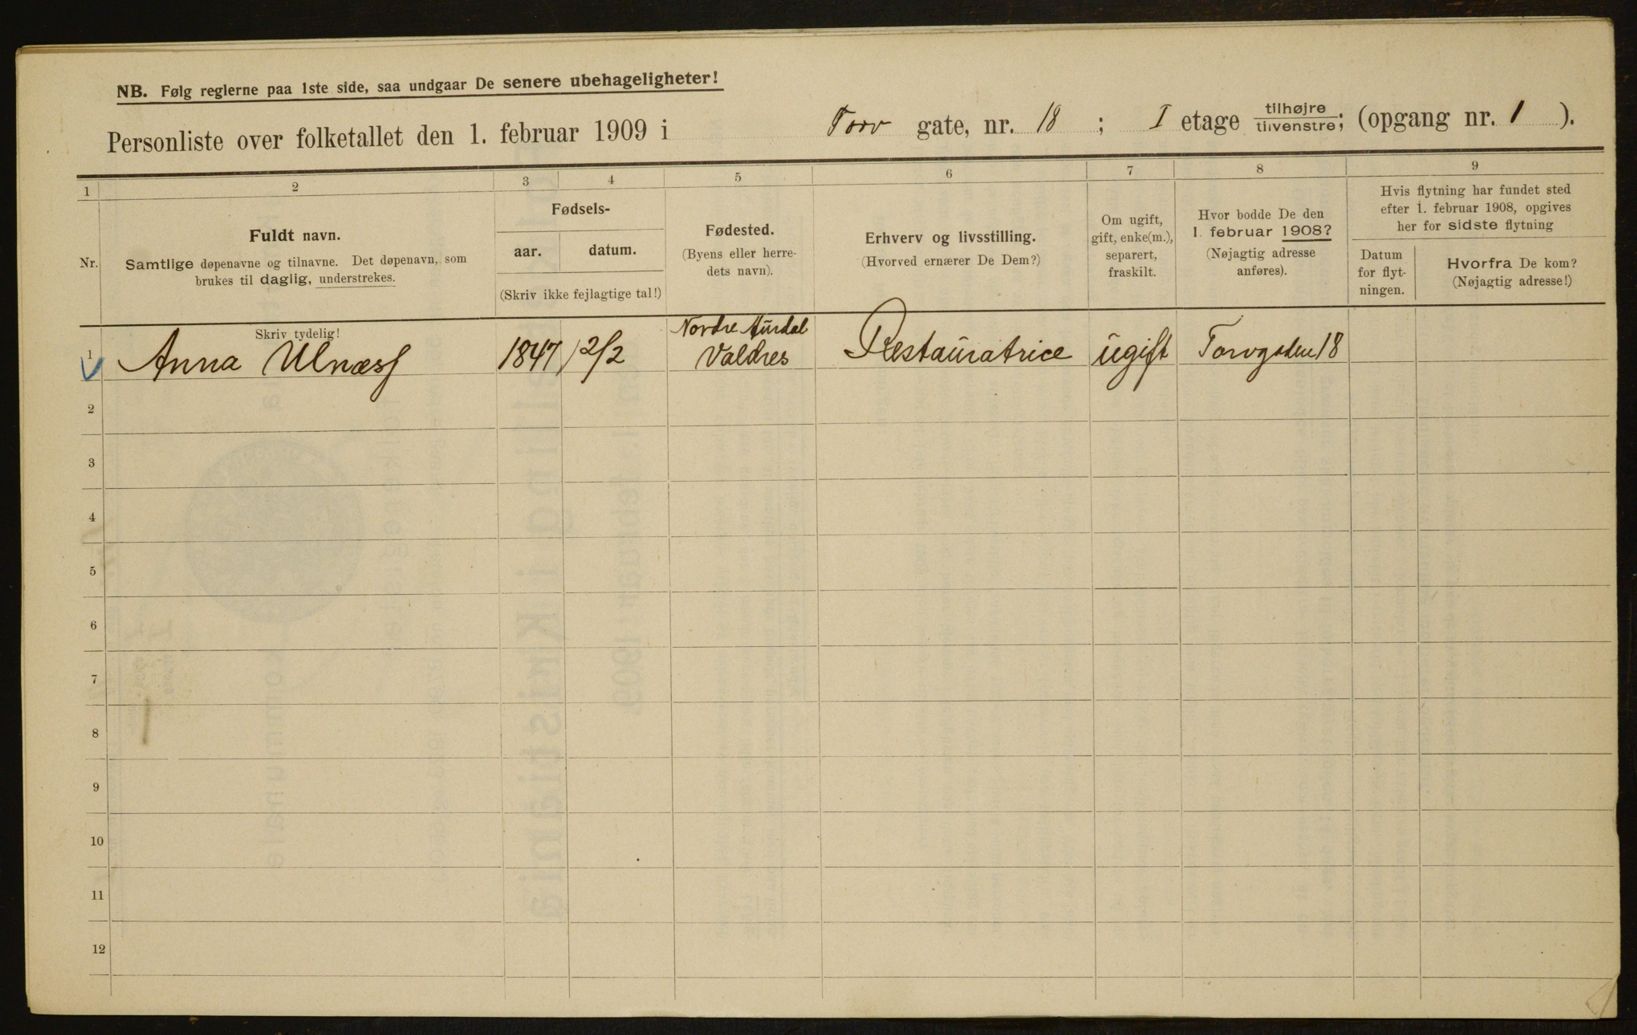 NB. Følg reglerne paa 1ste side, saa undgaar De senere ubehageligheter!
Personliste over folketallet den 1. februar 1909 i Torv gate, nr. 18 ; I etage tilhøjre/tilvenstre; (opgang nr. 1 ).
1 2 3 4 5 6 7 8 9
Nr.
Fuldt navn.
Samtlige døpenavne og tilnavne. Det døpenavn, som
brukes til daglig, understrekes.
Fødsels-
aar. datum.
(Skriv ikke fejlagtige tal!)
Fødested.
(Byens eller herre-
dets navn).
Erhverv og livsstilling.
(Hvorved ernærer De Dem?)
Om ugift,
gift, enke(m.),
separert,
fraskilt.
Hvor bodde De den
1. februar 1908?
(Nøjagtig adresse
anføres).
Hvis flytning har fundet sted
efter 1. februar 1908, opgives
her for sidste flytning
Datum
for flyt-
ningen.
Hvorfra De kom?
(Nøjagtig adresse!)
Skriv tydelig!
Nordre Aurdal
1 Anna Ulnæss 1847 2/2 Valdres Restauratrice ugift Torvgaten 18
2
3
4
5
6
7
8
9
10
11
12